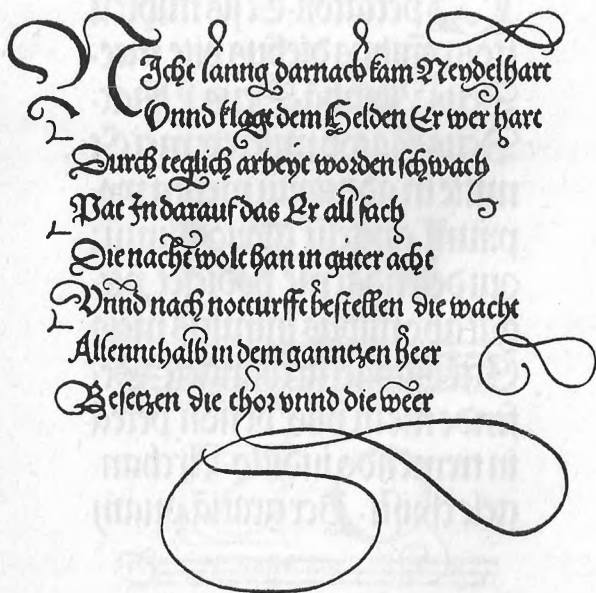 Nicht lanng darnach kam Neydelhart
Vnnd klagt dem Helden Er wer hart
Durch teglich arbeyt worden schwach
Pat Jn darauf das Er all sach
Die nacht wolt han in gůter acht
Vnnd nach notturfft bestellen die wacht
Allennthalb in dem ganntzen heer
Besetzen die thor vnnd die weer